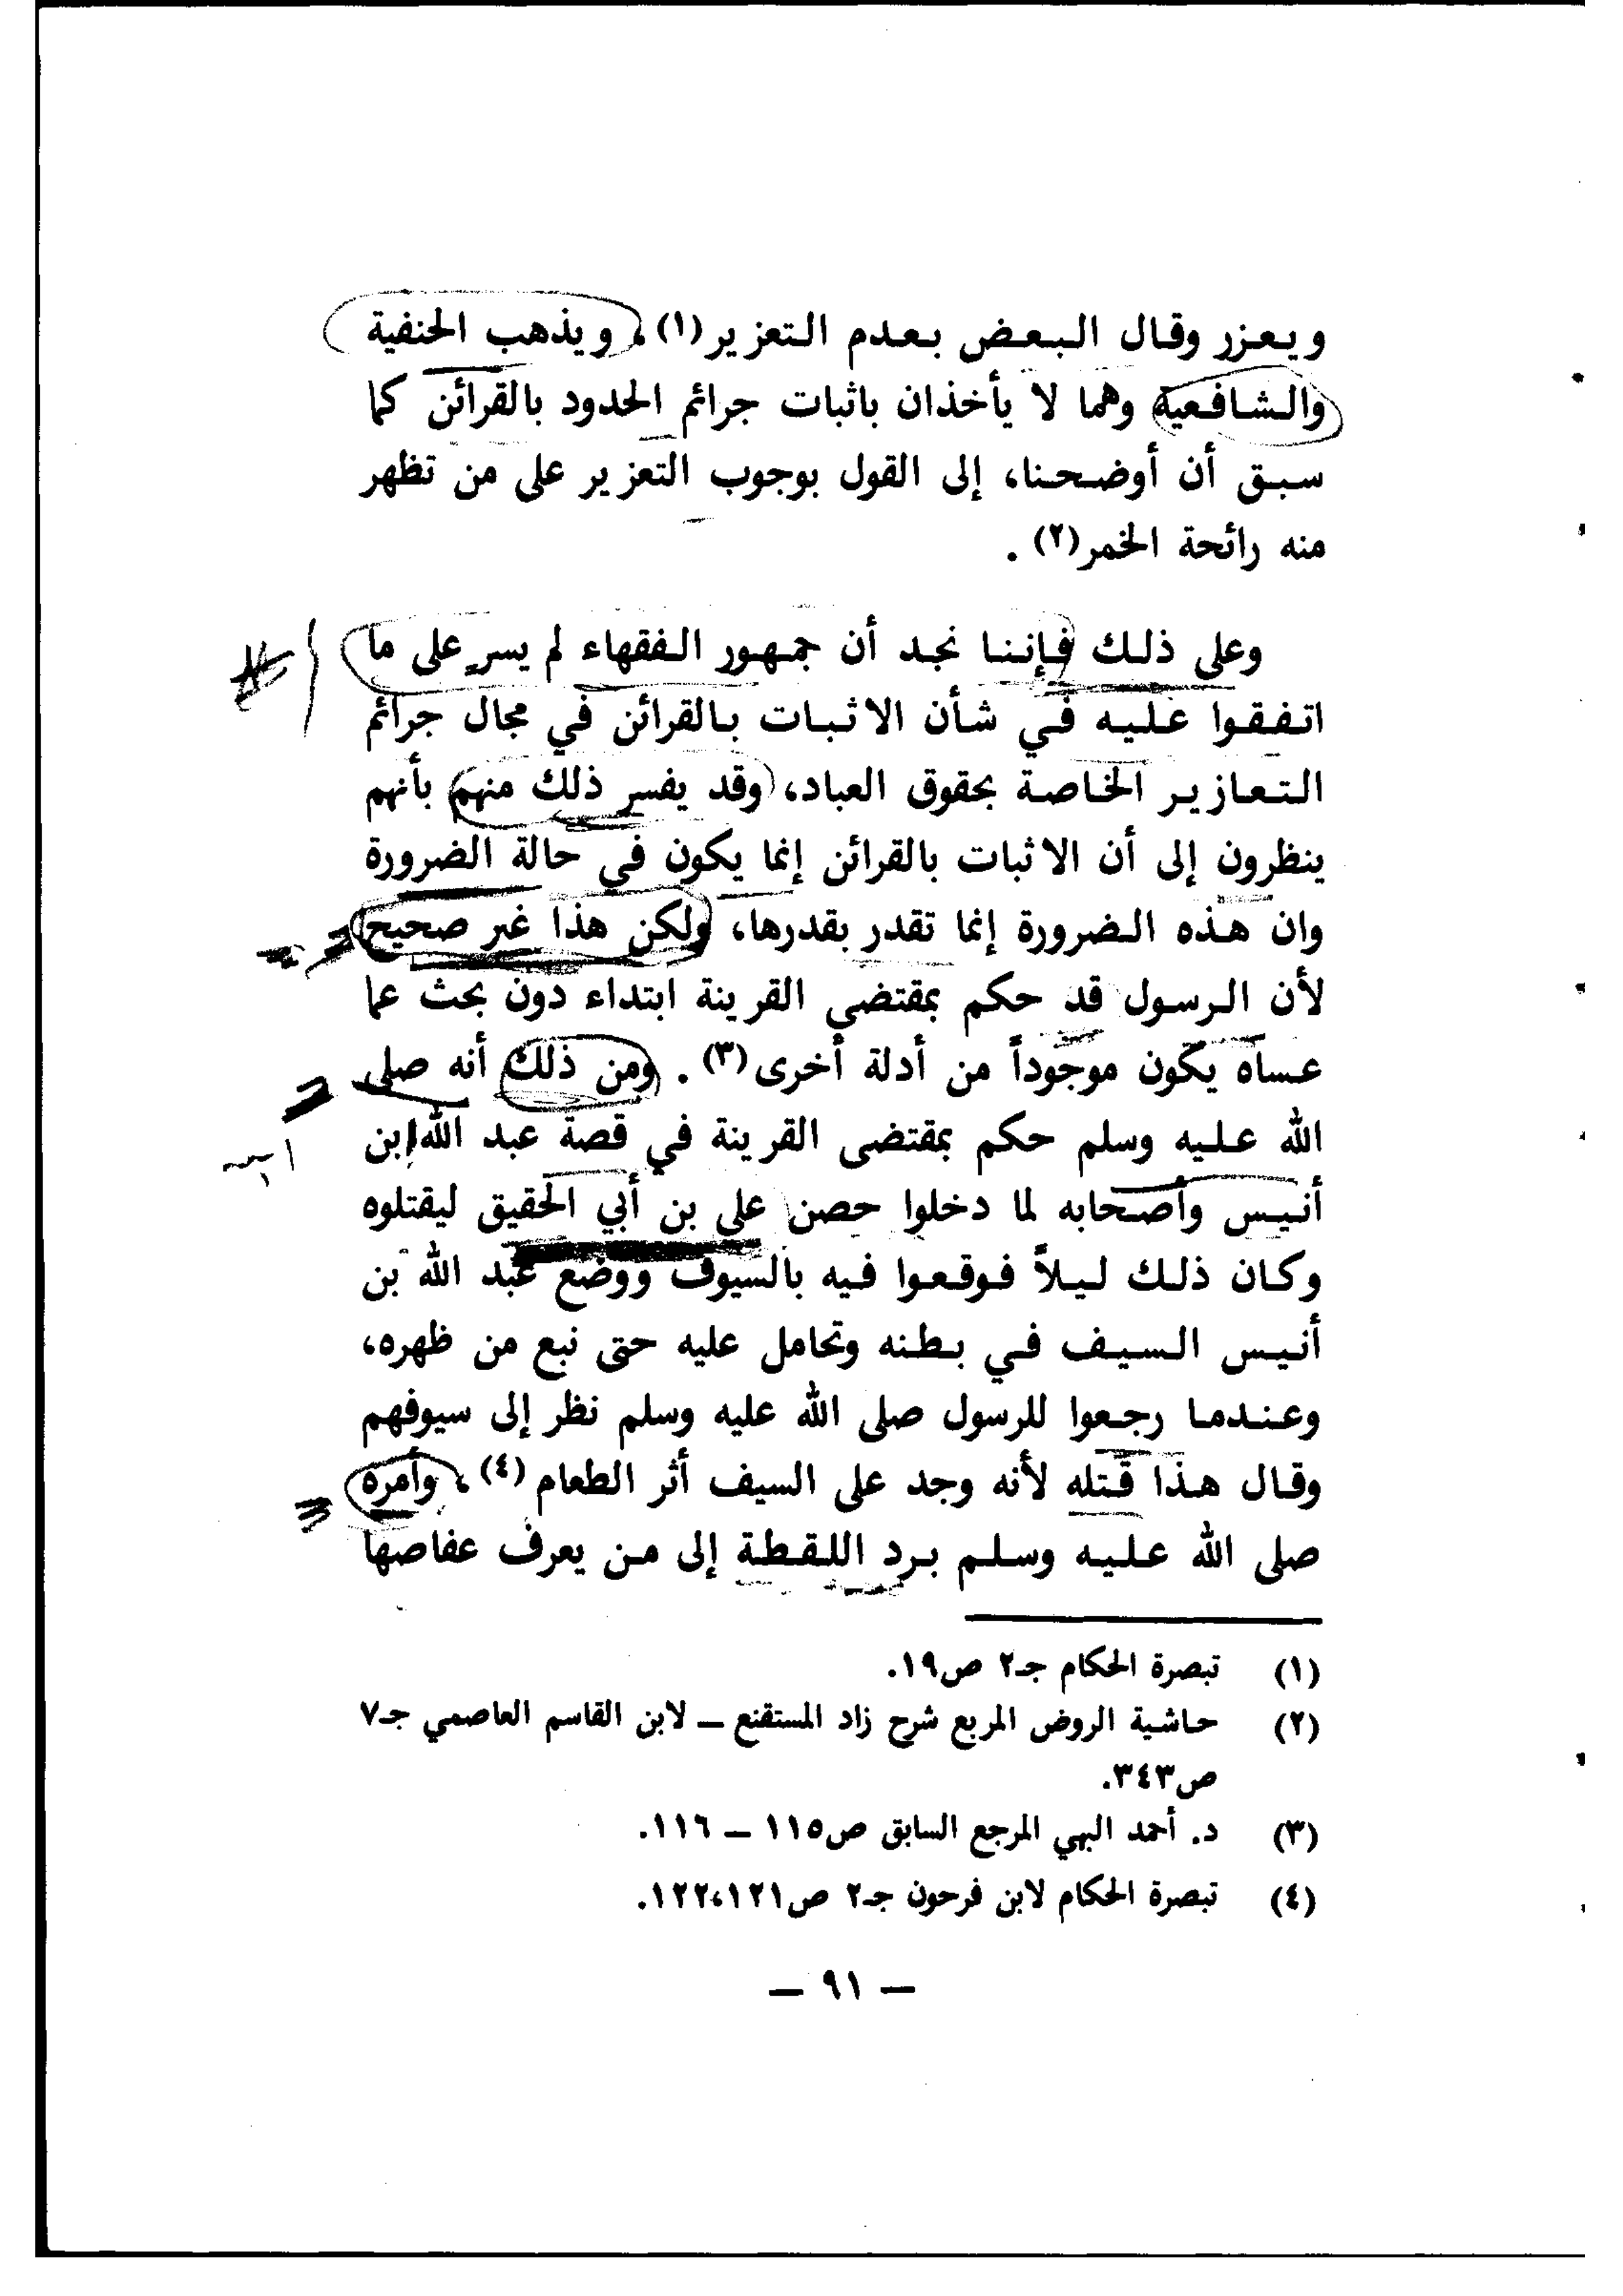 ويعزر وقال البعض بعدم التعزير(١)، ويذهب الحنفية
والشافعية وهما لا يأخذان باثبات جرائم الحدود بالقرائن كما
سبق أن أوضحنا، إلى القول بوجوب التعزير على من تظهر
منه رائحة الخمر(٢) .
وعلى ذلك فإننا نجد أن جمهور الفقهاء لم يسر على ما
اتفقوا عليه في شأن الاثبات بالقرائن في مجال جرائم
التعازير الخاصة بحقوق العباد، وقد يفسر ذلك منهم بأنهم
ينظرون إلى أن الاثبات بالقرائن إنما يكون في حالة الضرورة
وان هذه الضرورة إنما تقدر بقدرها، ولكن هذا غير صحيح
لأن الرسول قد حكم بمقتضى القرينة ابتداء دون بحث عما
عساه يكون موجوداً من أدلة أخرى(٣) . ومن ذلك أنه صلى
الله عليه وسلم حكم بمقتضى القرينة في قصة عبد الله ابن
أنيس وأصحابه لما دخلوا حصن على بن أبي الحقيق ليقتلوه
وكان ذلك ليلاً فوقعوا فيه بالسيوف ووضع عبد الله بن
أنيس السيف في بطنه وتحامل عليه حتى نبع من ظهره،
وعندما رجعوا للرسول صلى الله عليه وسلم نظر إلى سيوفهم
وقال هذا قتله لأنه وجد على السيف أثر الطعام(٤)، وأمره
صلى الله عليه وسلم برد اللقطة إلى من يعرف عفاصها
(١) تبصرة الحكام جـ٢ ص١٩.
(٢) حاشية الروض المربع شرح زاد المستقنع – لابن القاسم العاصمي جـ٧
ص٣٤٣.
(٣) د. أحمد البهي المرجع السابق ص١١٥ – ١١٦.
(٤) تبصرة الحكام لابن فرحون جـ٢ ص١٢١،١٢٢.
– ٩١ –